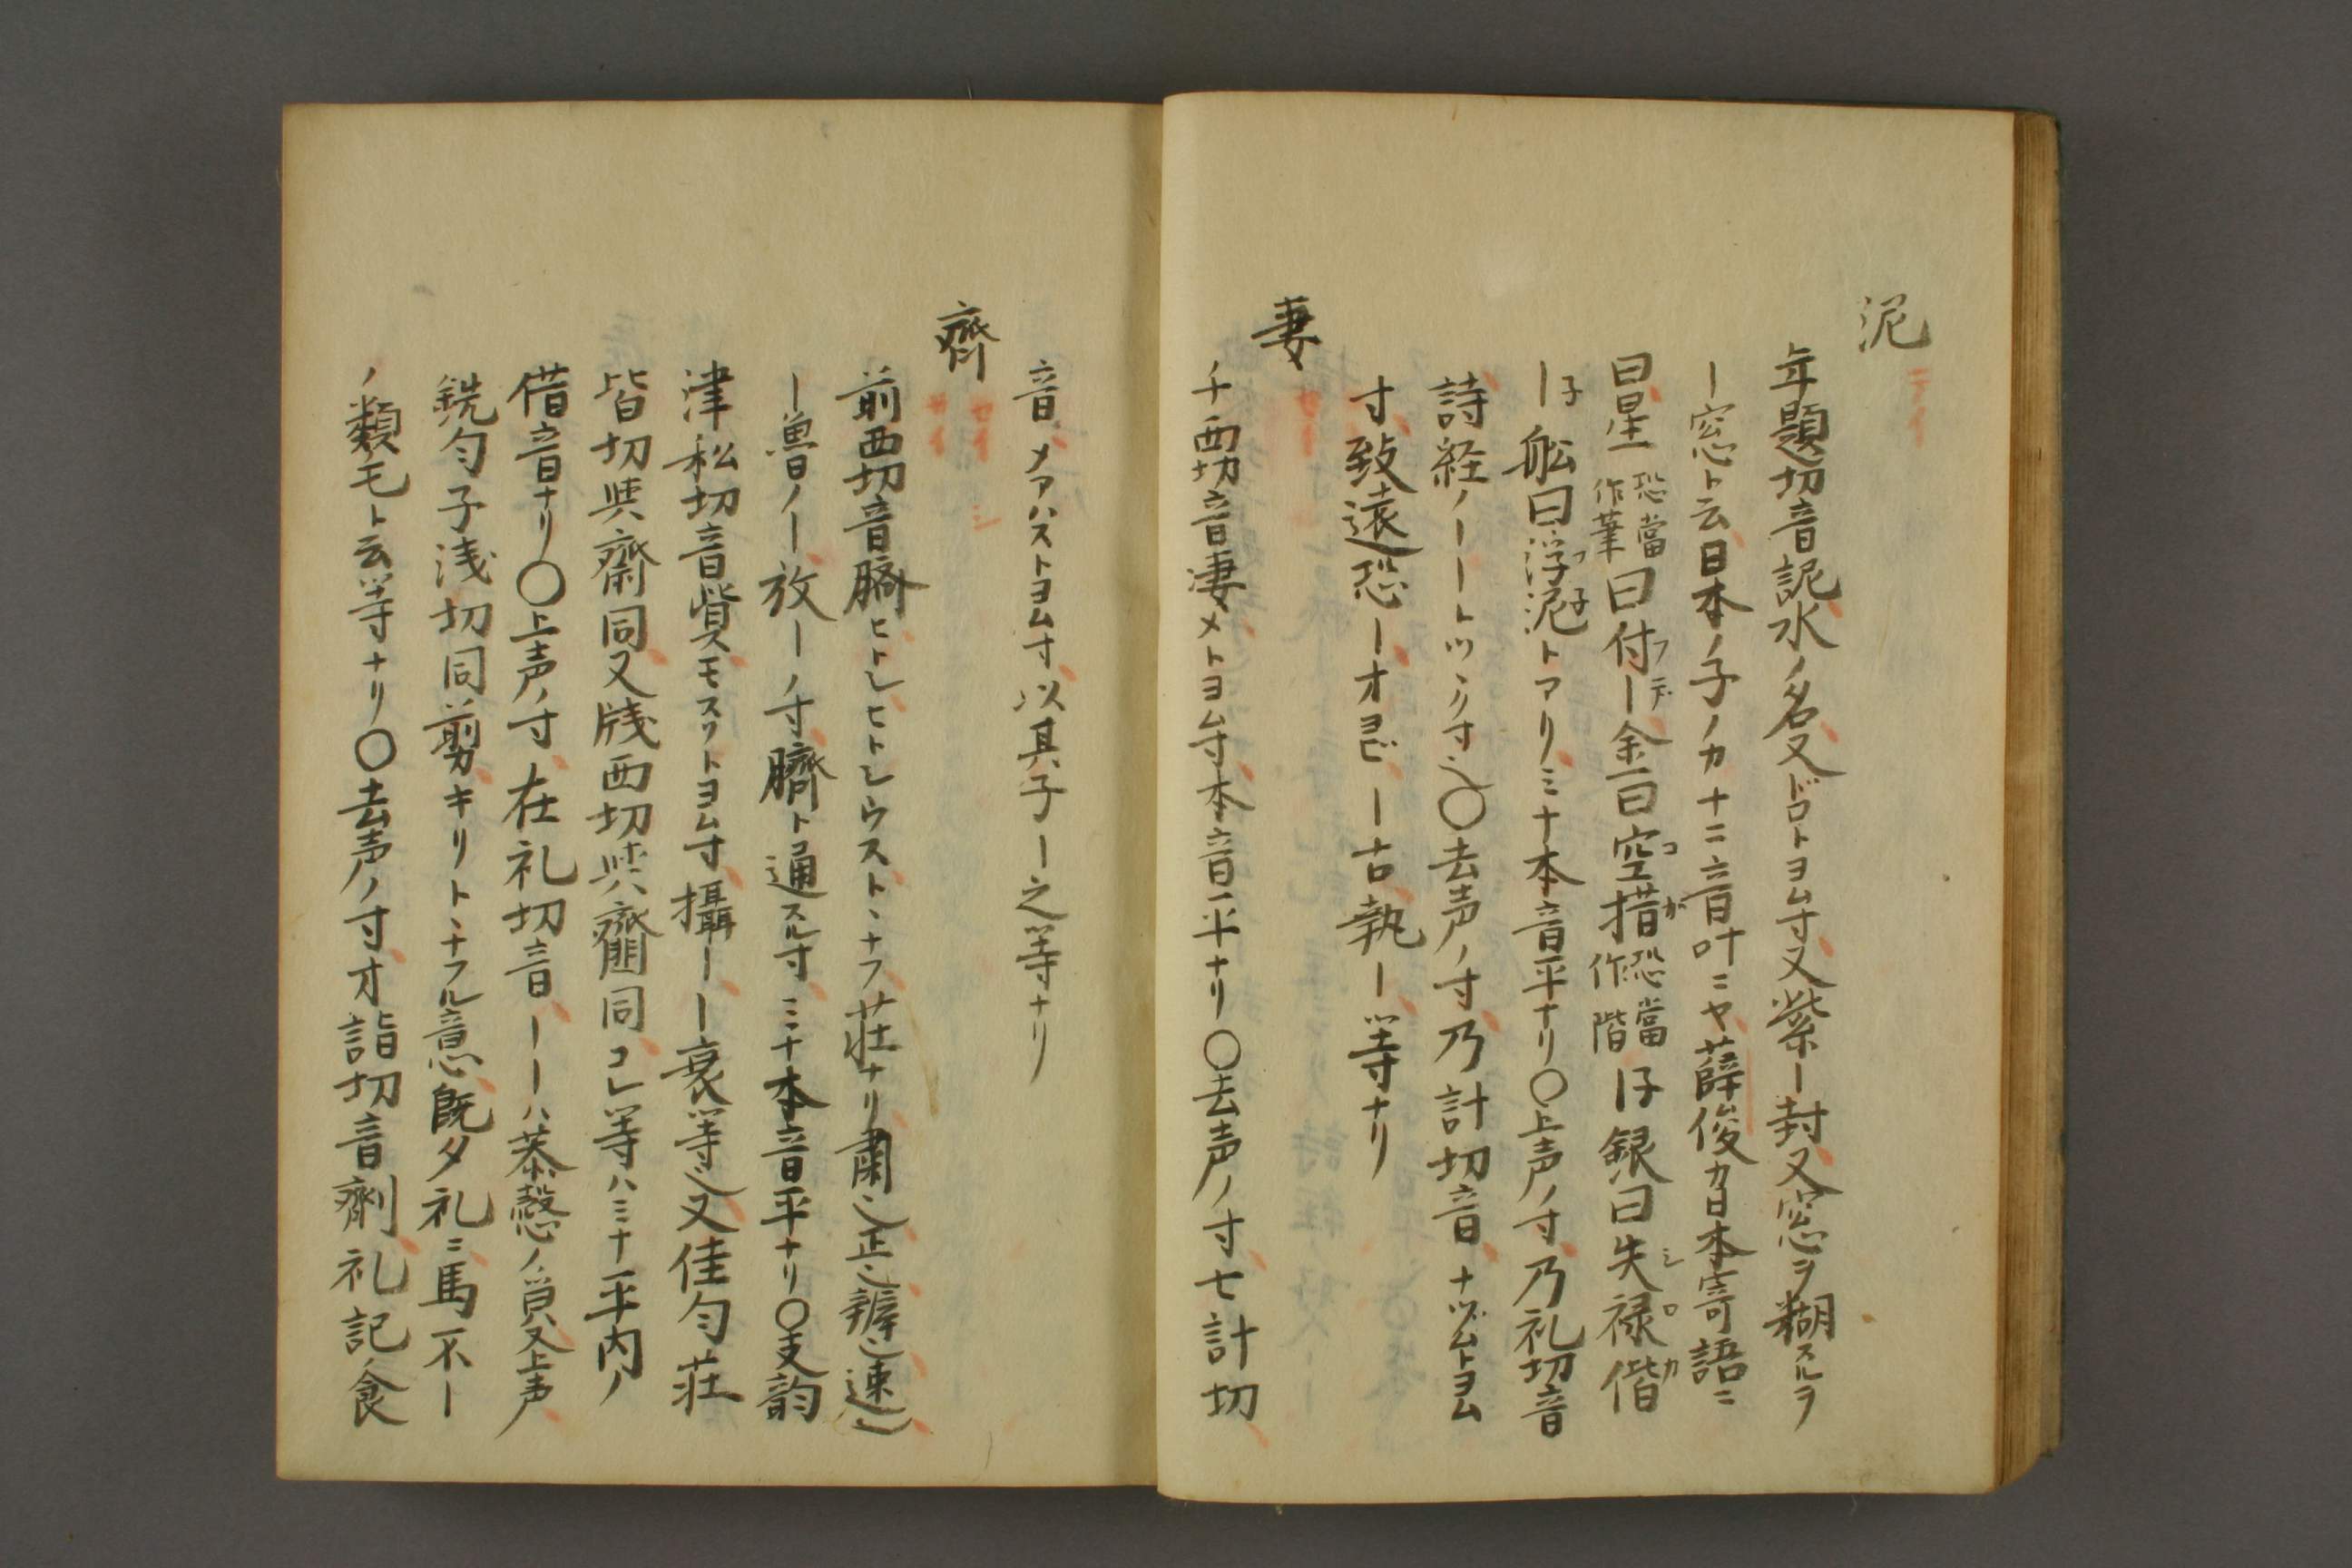 泥
テイ
年題切音詑水ノ名又ドロトヨム寸又紫ー封又窓ヲ糊スルヲ
ー窓ト云日本ノ子ノカナニ音叶ニヤ薛俊カ日本寄語ニ
曰星 恐當作筆 曰付ー 金曰空措 恐當作階 仔銀曰失禄偕
フデ コガ シロカ
ー 舩曰浮泥トマリミナ本音平ナリ〇上声ノ寸乃礼切音
子 フ子
詩経ノーートツヽク寸〇去声ノ寸乃計切音、ナヅムトヨム
寸致遠恐ーオヨビー古執ー等ナリ
妻
サイ
千西切音凄メトヨム寸本音平ナリ〇去声ノ寸七計切
音、メアハストヨム寸以其子ー之等ナリ
齊
セイ シ
サイ
前西切音臍ヒトシヒトシウストヽナフ荘ナリ肅也正也辨也速也
ー魯ノー放ーノ寸臍ト通スル寸ミナ本音平ナリ〇支韵
津私切音貲スモスソトヨム寸攝ーー衰等也又佳匀荘
皆切與齋同又牋西切與齏同コレ等ハミナ平内ノ
借音ナリ〇上声ノ寸在礼切音ーーハ恭愨ノ皃又上声
銑匀子浅切同剪キリトヽナフル意既夕礼ニ馬不ー
ノ類モト云等ナリ〇去声ノ寸才詣切音劑礼記ノ食